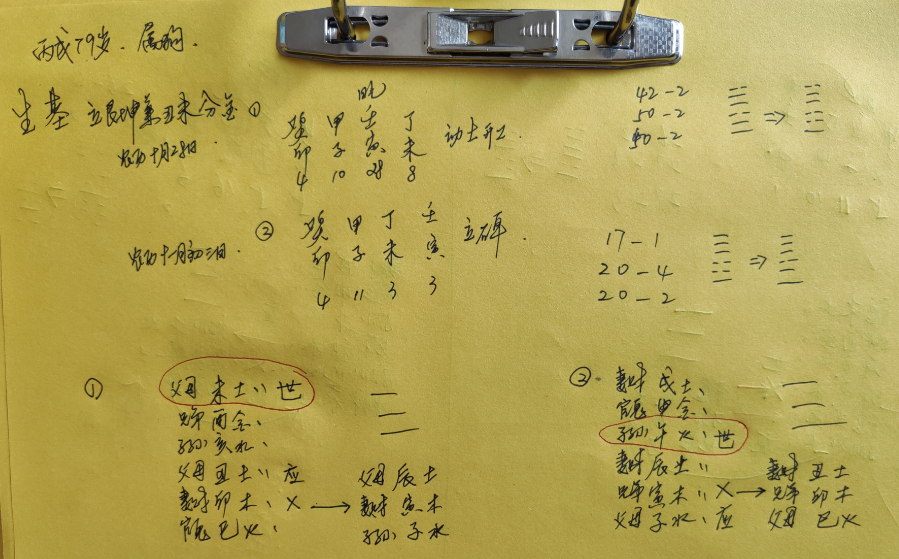 丙戌79岁．属狗．
生基 立艮坤兼丑未分金 ①
农历十月28日．
癸 甲 壬 丁
卯 子 寅 未 动土开工．
4 10 28 8
42－2
50－2
50－2
②
农历十一月初三日．
癸 甲 丁 壬
卯 子 未 寅 立碑．
4 11 3 3
17－1
20－4
20－2
①
父母 未土、、世
兄弟 酉金、
子孙 亥水、
父母 丑土、、应
妻财 卯木、X → 
官鬼 巳火、
父母 辰土
妻财 寅木
子孙 子水
②．
妻财 戌土、
官鬼 申金、
子孙 午火、世
妻财 辰土、、
兄弟 寅木、、X → 
父母 子水、应
妻财 丑土
兄弟 卯木
父母 巳火